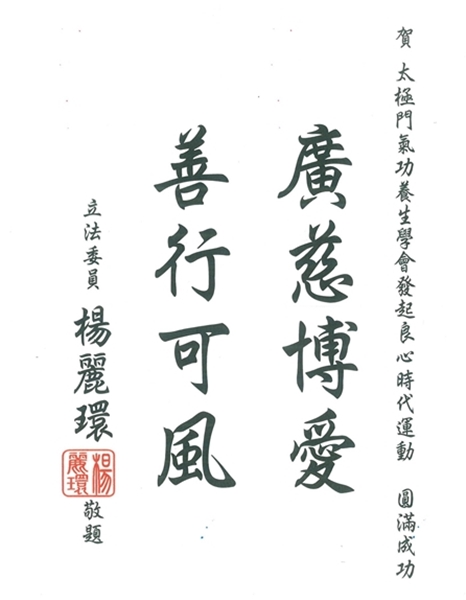 賀 太極門氣功養生學會發起良心時代運動 圓滿成功
廣慈博愛
善行可風
立法委員 楊麗環 敬題
楊麗環